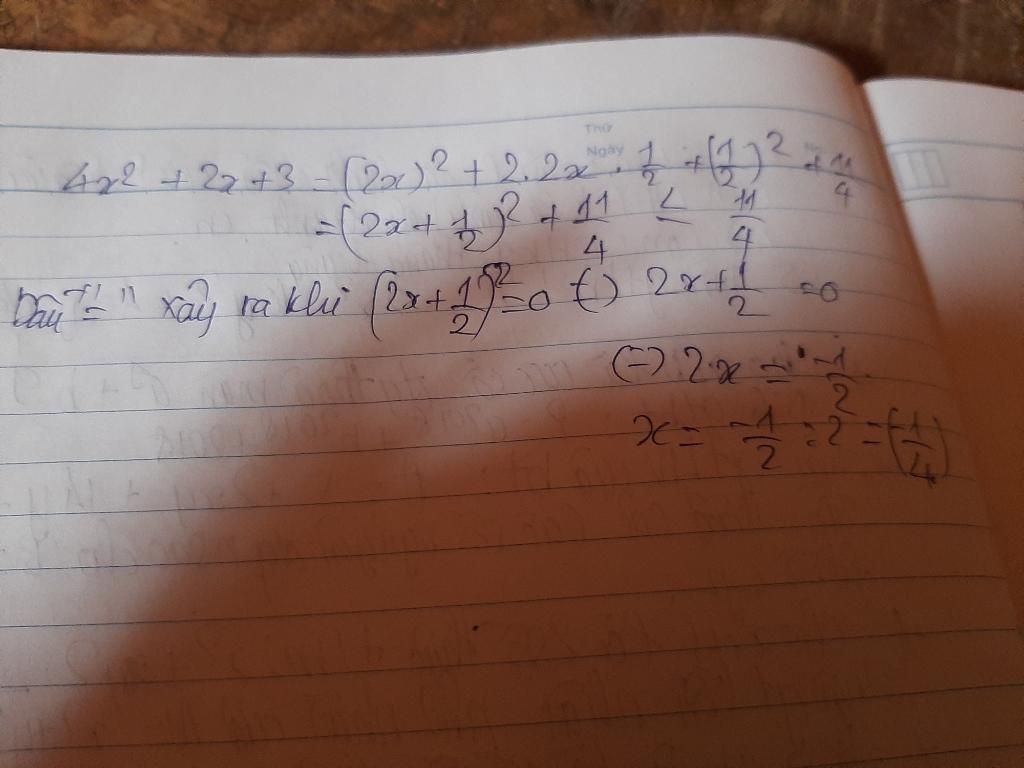 Thứ
Ngày
4x² + 2x + 3 = (2x)² + 2.2x . 1/2 + (1/2)² + 11/4
= (2x + 1/2)² + 11/4 ≤ 11/4
Dấu "=" xảy ra khi (2x + 1/2)² = 0 (=) 2x + 1/2 = 0
(=) 2x = -1/2
x = -1/2 : 2 = (-1/4)